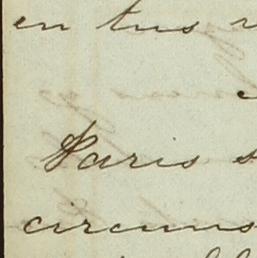 en tus
Paris s
circuns